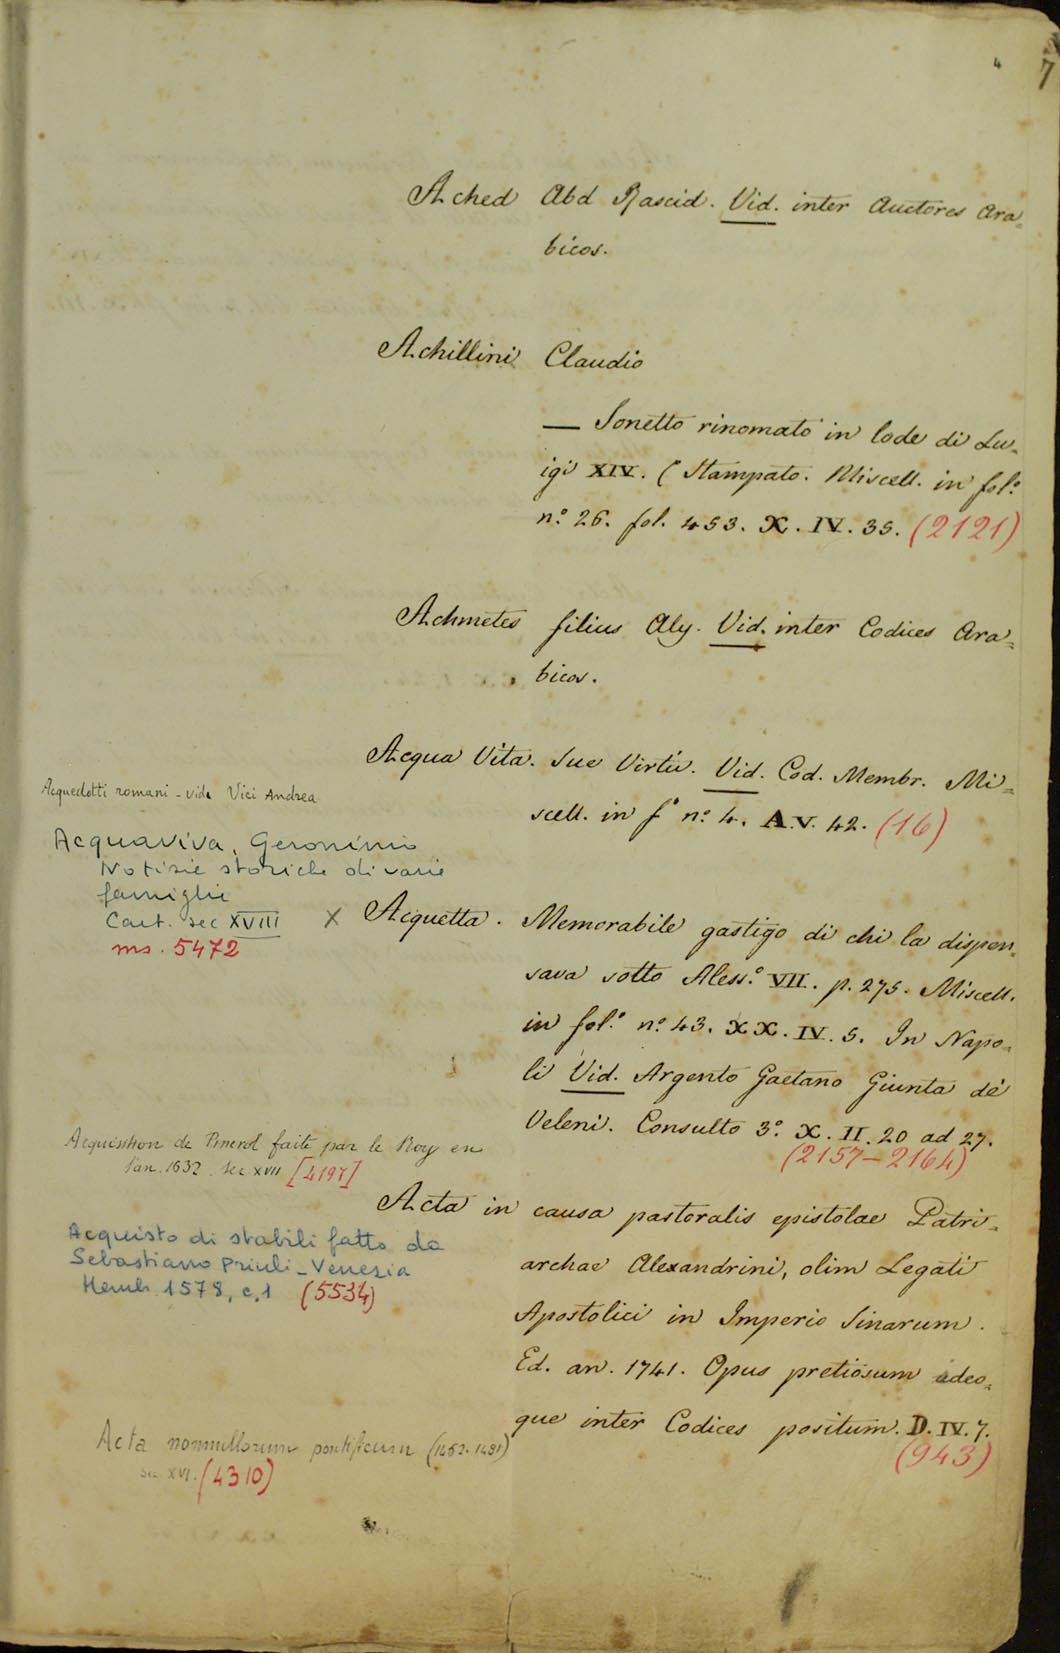 4
7
Ached Abd Rascid. Vid. inter Auctores Ara=
bicos.
Achillini Claudio
— Sonetto rinomato in lode di Lu=
igi XIV. (Stampato. Miscell. in fol.º
n.º 26. fol. 453. X. IV. 35. (2121)
Achmetes filius Aly. Vid. inter Codices Ara=
bicos.
Acqua Vita. Sue Virtù. Vid. Cod. Membr. Mi=
scell. in fº n.º 4. A.V. 42. (16)
Acquedotti romani - vide Vici Andrea
Acquaviva, Geronimo
Notizie storiche di varie
famiglie
Cart. sec XVIII
ms. 5472
X Acquetta. Memorabile gastigo di chi la dispen=
sava sotto Aless.º VII. p. 275. Miscell.
in fol.º n.º 43. XX. IV. 5. In Napo=
li Vid. Argento Gaetano Giunta de'
Veleni. Consulto 3.º X. II. 20 ad 27.
(2157-2164)
Acquisition de Pinerol faite par le Roy en
l'an. 1632. sec XVII [4197]
Acquisto di stabili fatto da
Sebastiano Priuli - Venezia
Memb. 1578, c. 1 (5534)
Acta in causa pastoralis epistolae Patri=
archae Alexandrini, olim Legati
Apostolici in Imperio Sinarum.
Ed. an. 1741. Opus pretiosum adeo=
que inter Codices positum. D. IV. 7.
(943)
Acta nonnullorum pontificum (1462-1481)
sec XVI. (4310)